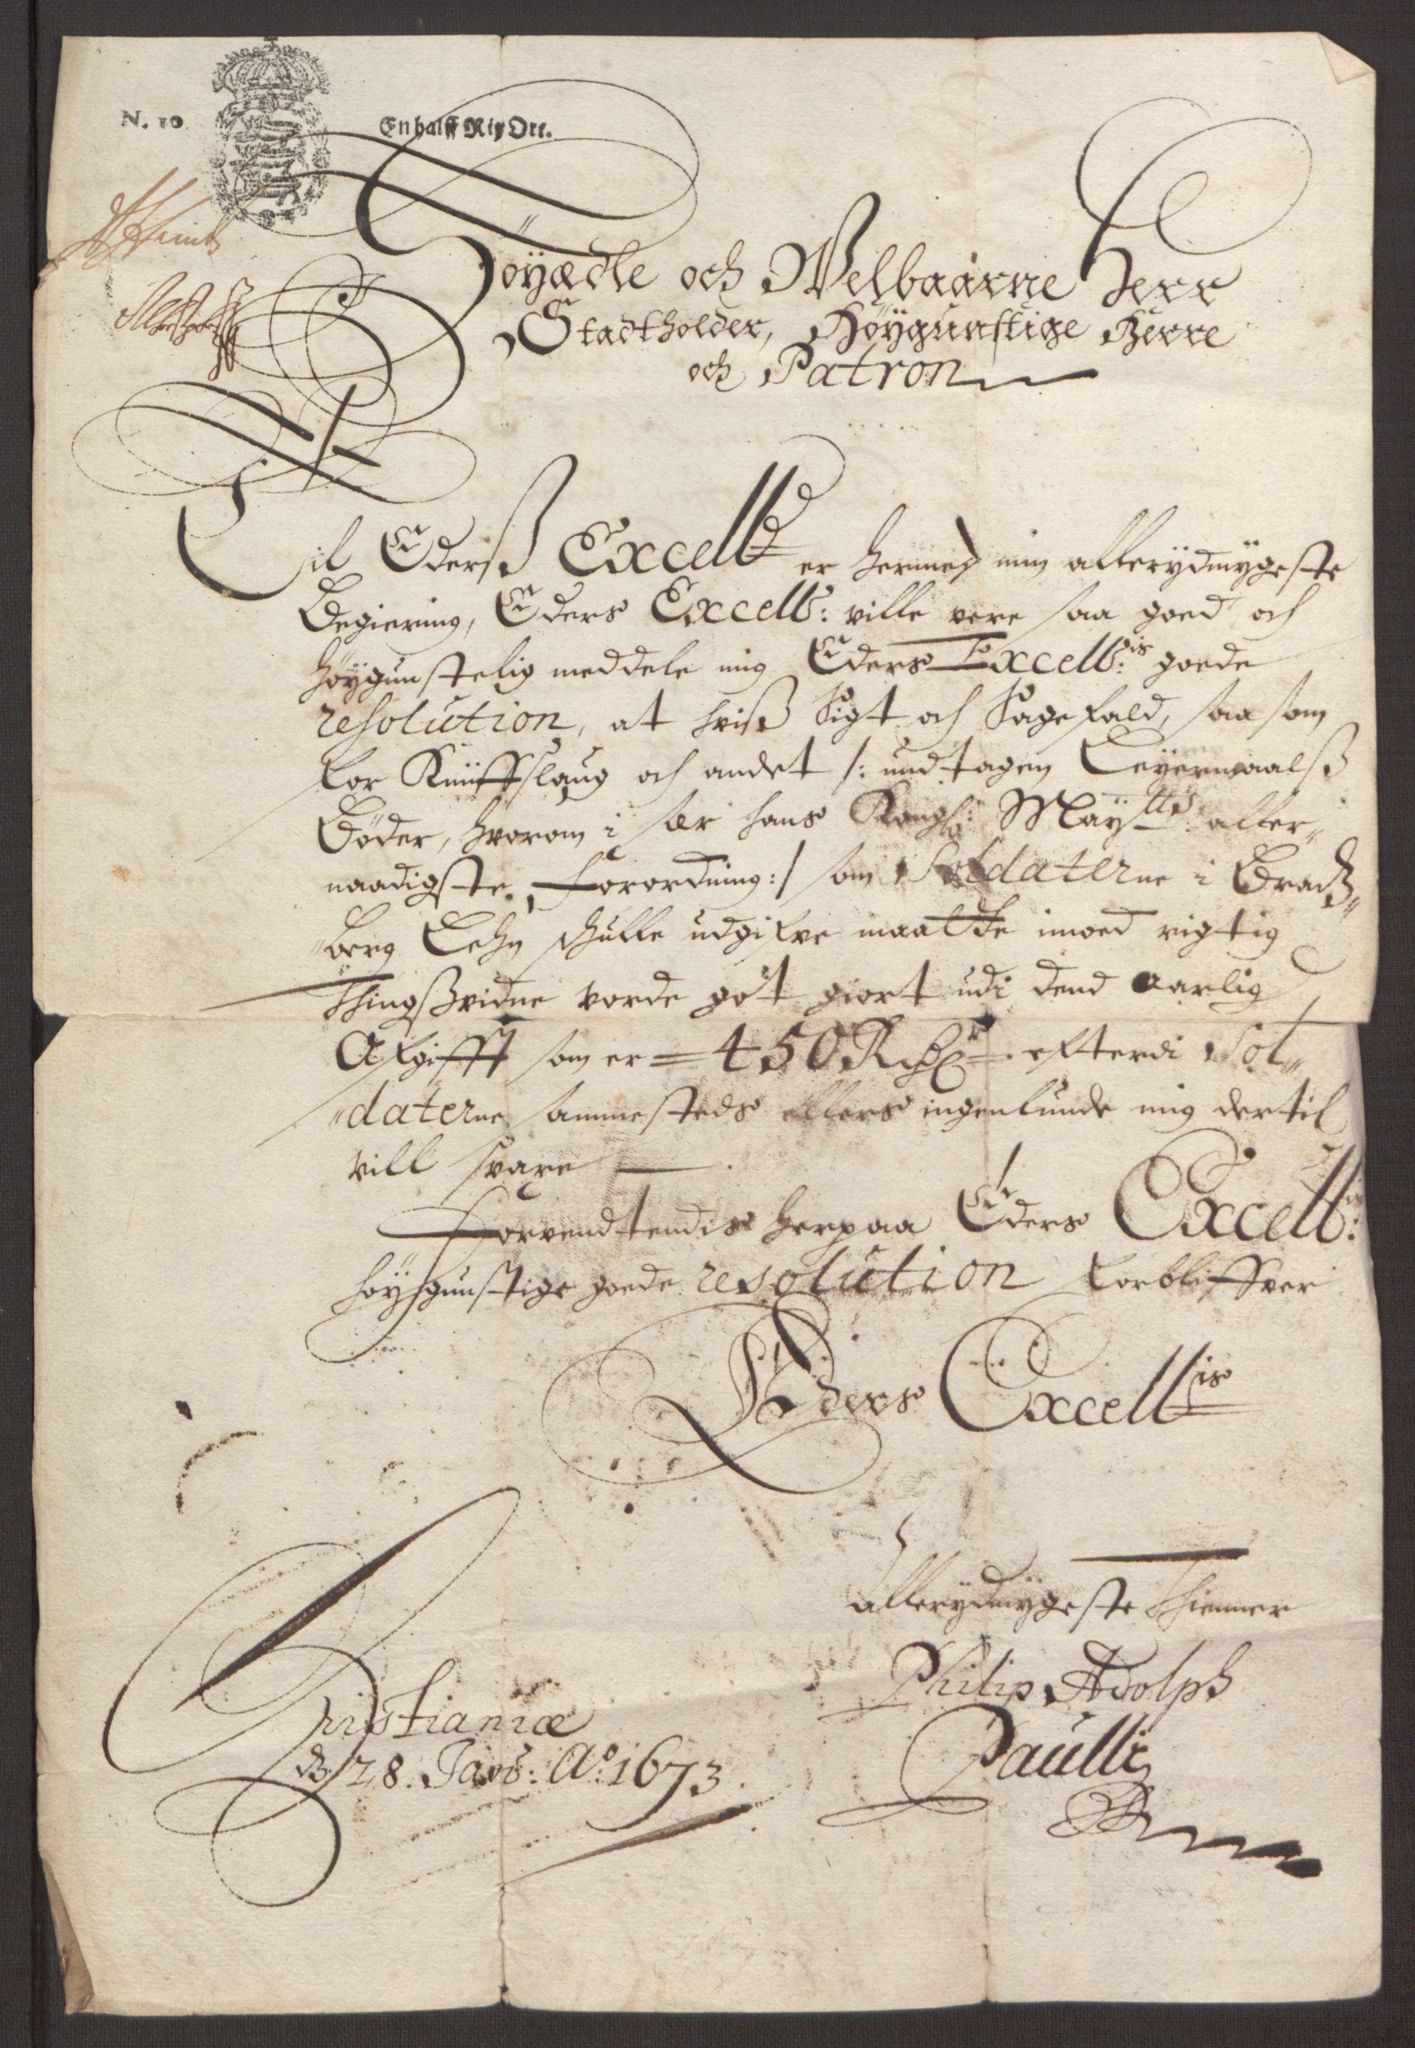 N. 10
En halff Rix Ort.
Höyædle och Welbaarne Herr
Stadtholder, Höygunstige Herre
och Patron
Til Ederß Excell: er hermed min allerydmygeste
Begiering, Eders Excell: ville vere saa goed och
höygunstelig meddele mig Eders Excell:is goede
resolution, at hviß Sigt och Sagefald, saa som
for Knüffslaug och andet /: undtagen Leyermaalß
Böder, hvorom i sær hans Kongl: Maytts aller„
naadigste Forordning :/ som Soldaterne i Bradtz„
„berg Lehn schulle udgifve maatte imoed rigtig
Thingßvidne vorde got giort udi dend Aarlig
Afgifft som er = 450 Rdr = efterdi Sol„
„daterne sammesteds ellers ingenlunde mig dertil
vill svare
Forvendtendis herpaa Eders Excell:is
höygunstige goede resolution forbliffver
Eders Excell:is
allerydmygeste Thienner
Philip Adolph
Paulli
Christianiæ
d. 28. Jan: Ao: 1673.